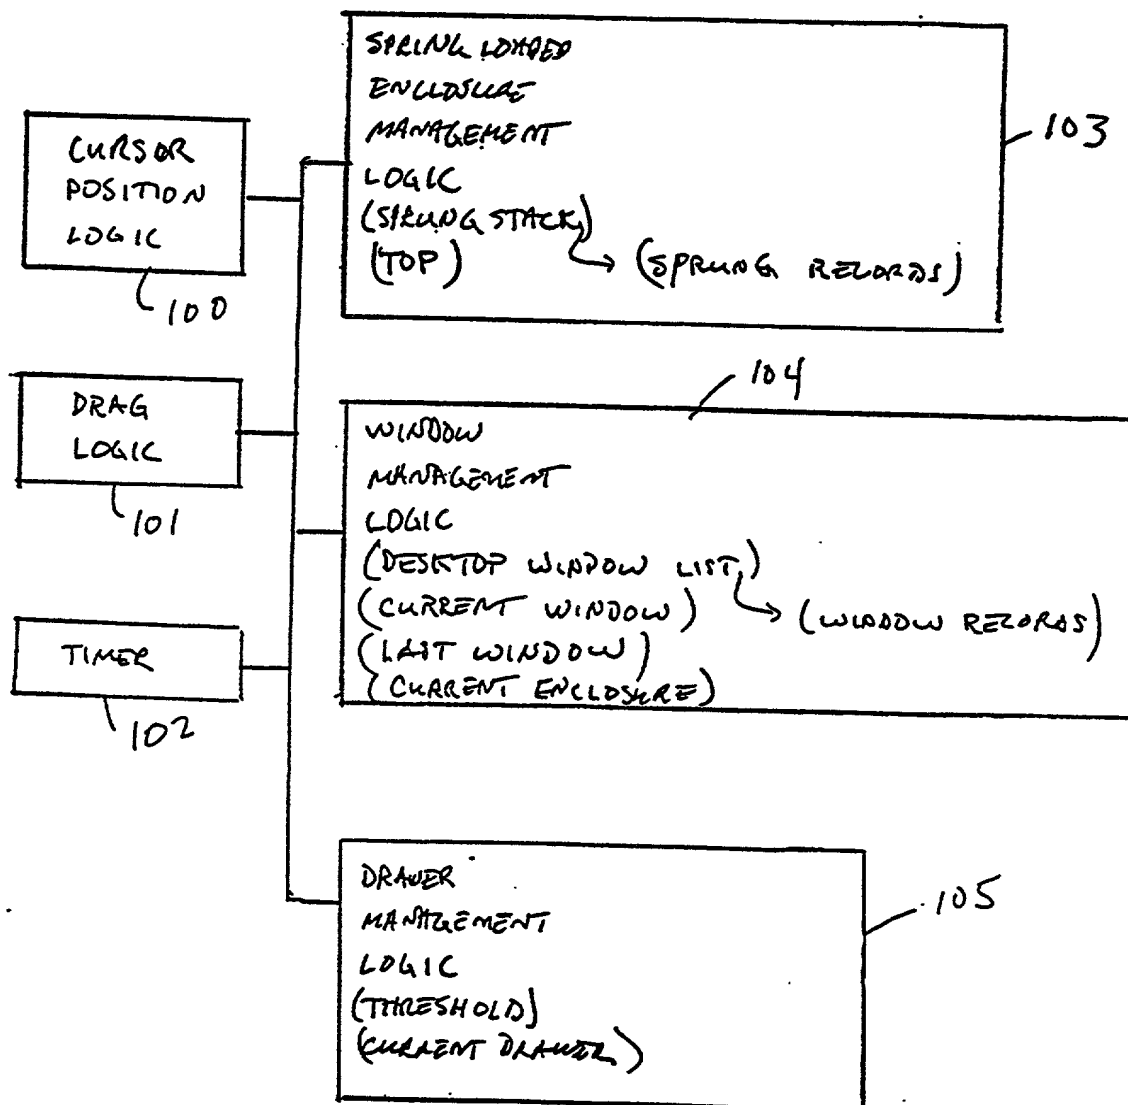 CURSOR
POSITION
LOGIC
100
DRAG
LOGIC
101
TIMER
102
SPRING LOADED
ENCLOSURE
MANAGEMENT
LOGIC
(SPRUNG STACK)
(TOP)
(SPRUNG RECORDS)
103
104
WINDOW
MANAGEMENT
LOGIC
(DESKTOP WINDOW LIST)
(CURRENT WINDOW)
(WINDOW RECORDS)
(LAST WINDOW)
(CURRENT ENCLOSURE)
DRAWER
MANAGEMENT
LOGIC
(THRESHOLD)
(CURRENT DRAWER)
105